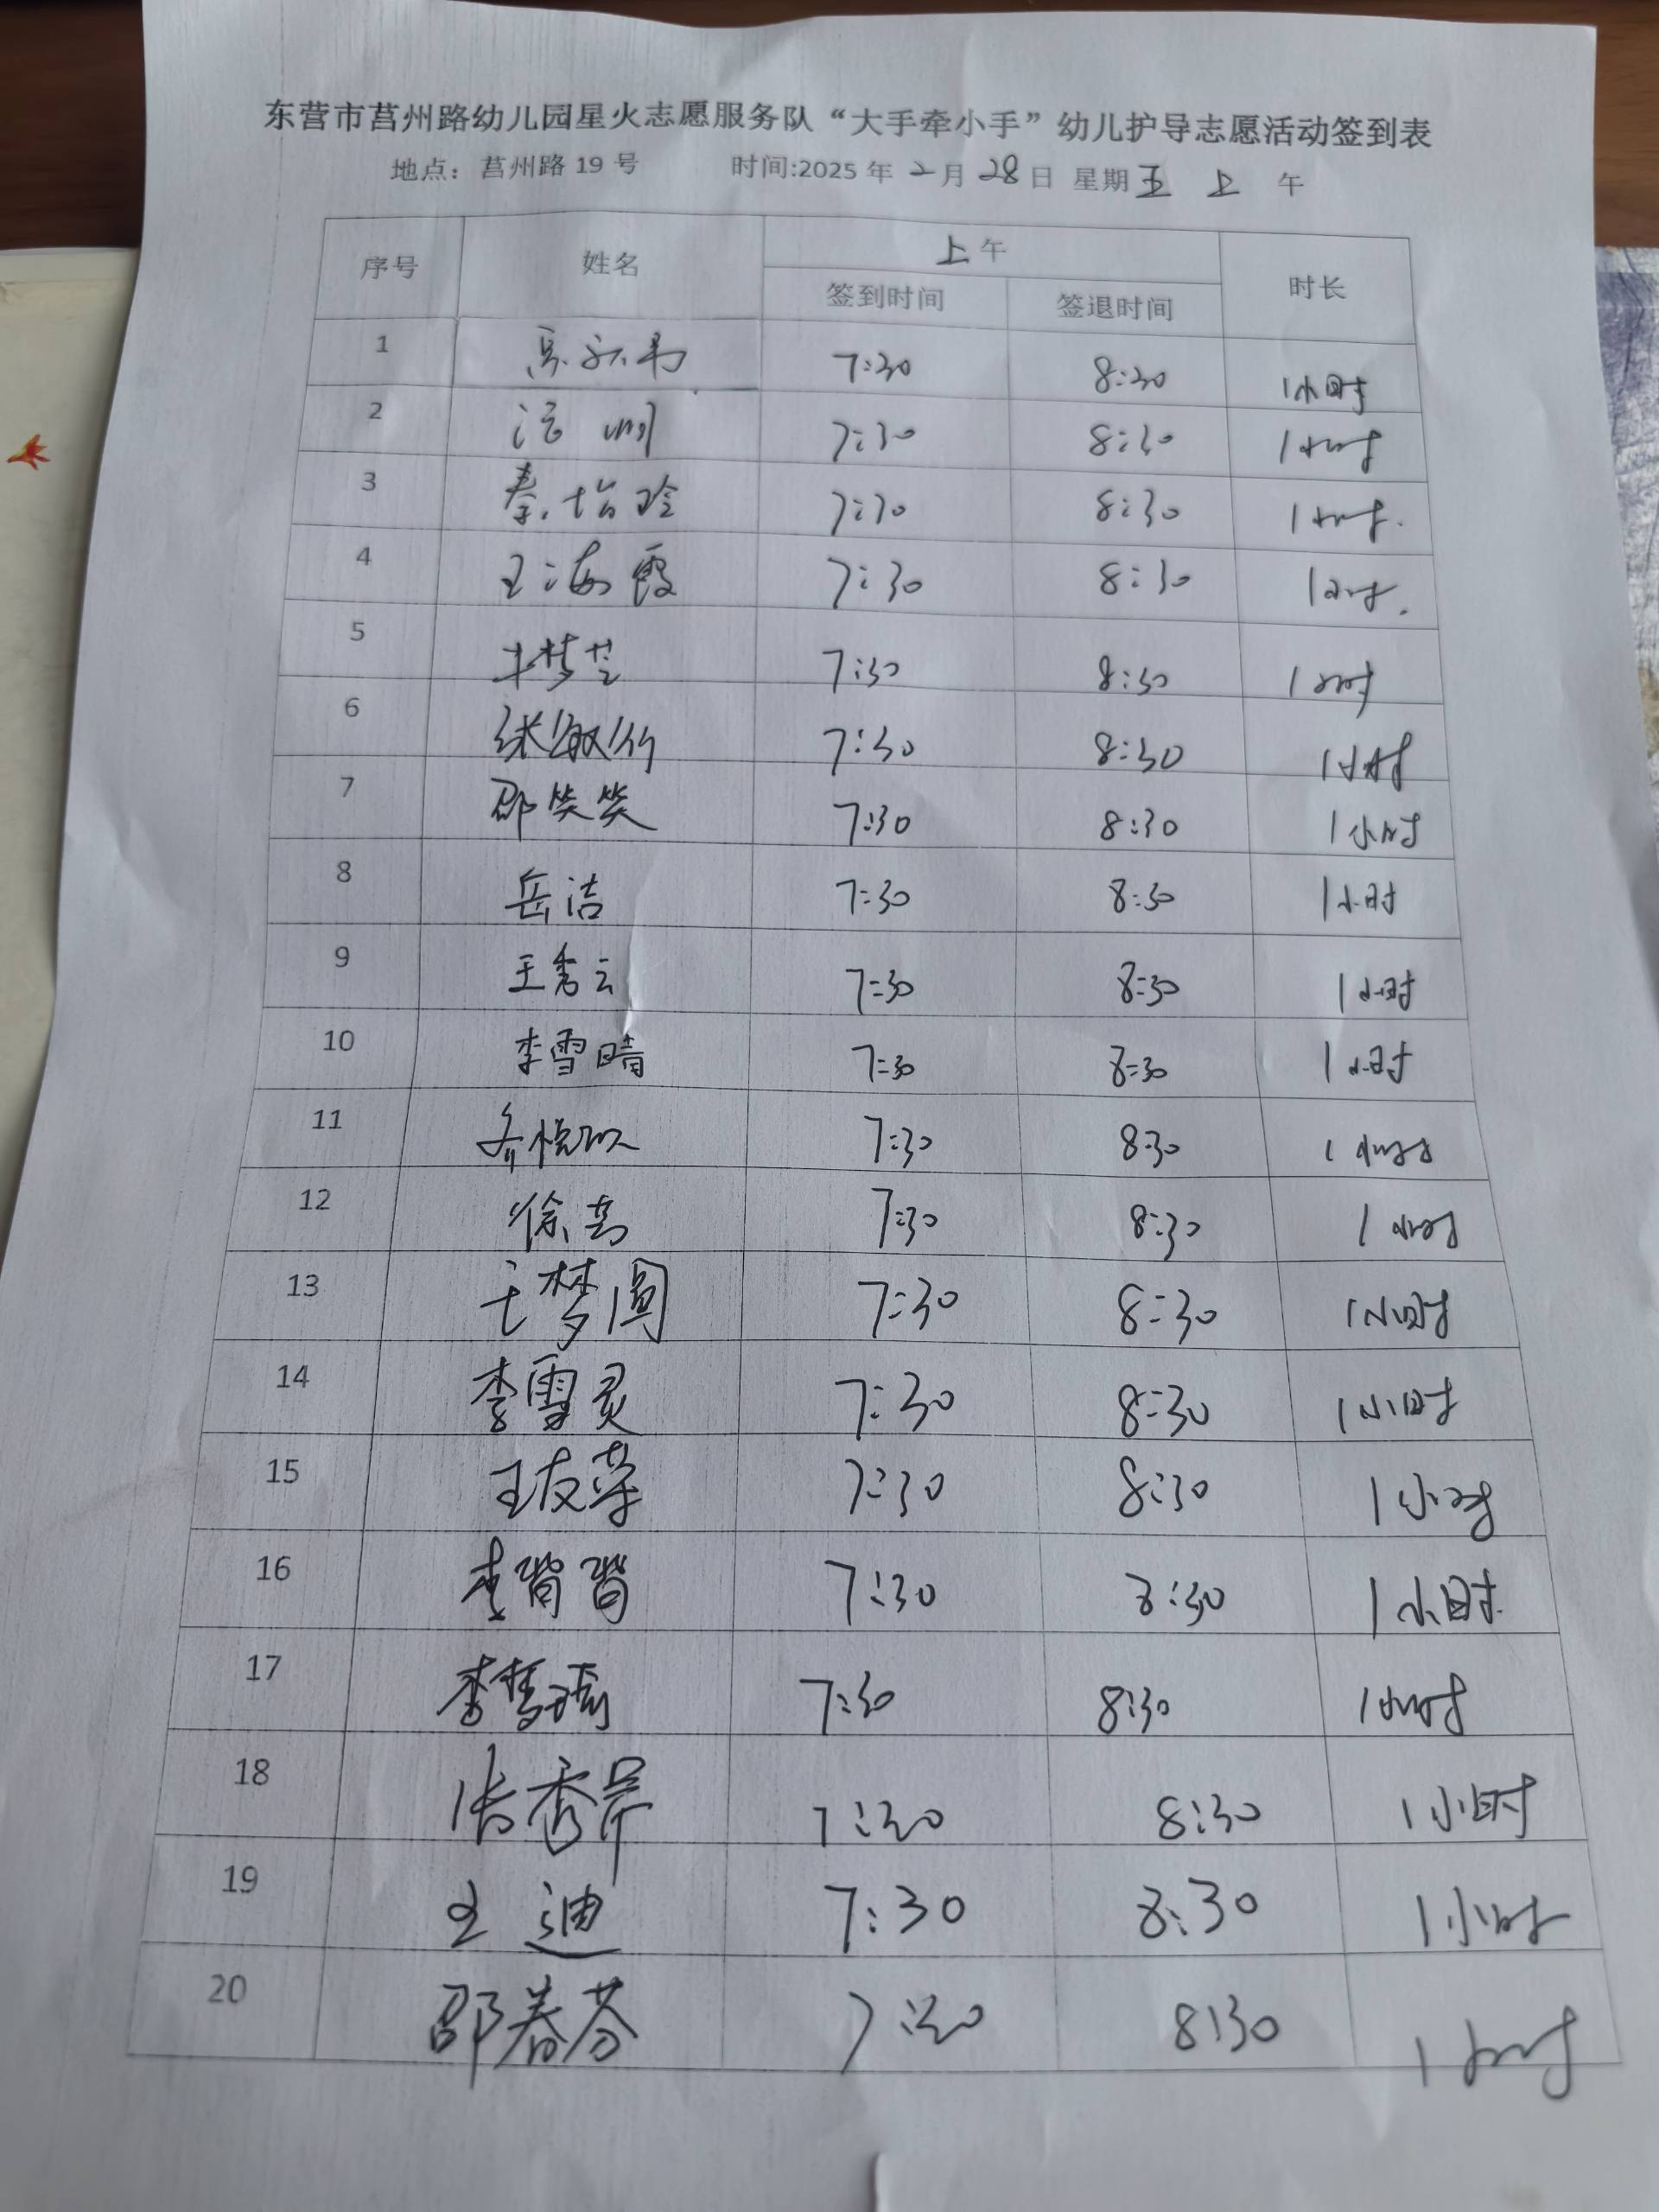 东营市莒州路幼儿园星火志愿服务队“大手牵小手”幼儿护导志愿活动签到表
地点：莒州路 19 号 时间:2025 年 2 月 28 日 星期 五 上 午
序号 姓名 上午 时长
签到时间 签退时间
1 7:30 8:30 1小时
2 7:30 8:30 1小时
3 秦怡玲 7:30 8:30 1小时
4 王海霞 7:30 8:30 1小时
5 7:30 8:30 1小时
6 7:30 8:30 1小时
7 邵笑笑 7:30 8:30 1小时
8 岳洁 7:30 8:30 1小时
9 王秀云 7:30 8:30 1小时
10 李雪晴 7:30 8:30 1小时
11 7:30 8:30 1小时
12 7:30 8:30 1小时
13 王梦圆 7:30 8:30 1小时
14 李雪灵 7:30 8:30 1小时
15 王友荣 7:30 8:30 1小时
16 7:30 8:30 1小时
17 李梦瑶 7:30 8:30 1小时
18 张秀芹 7:30 8:30 1小时
19 王迪 7:30 8:30 1小时
20 邵春芬 7:30 8:30 1小时